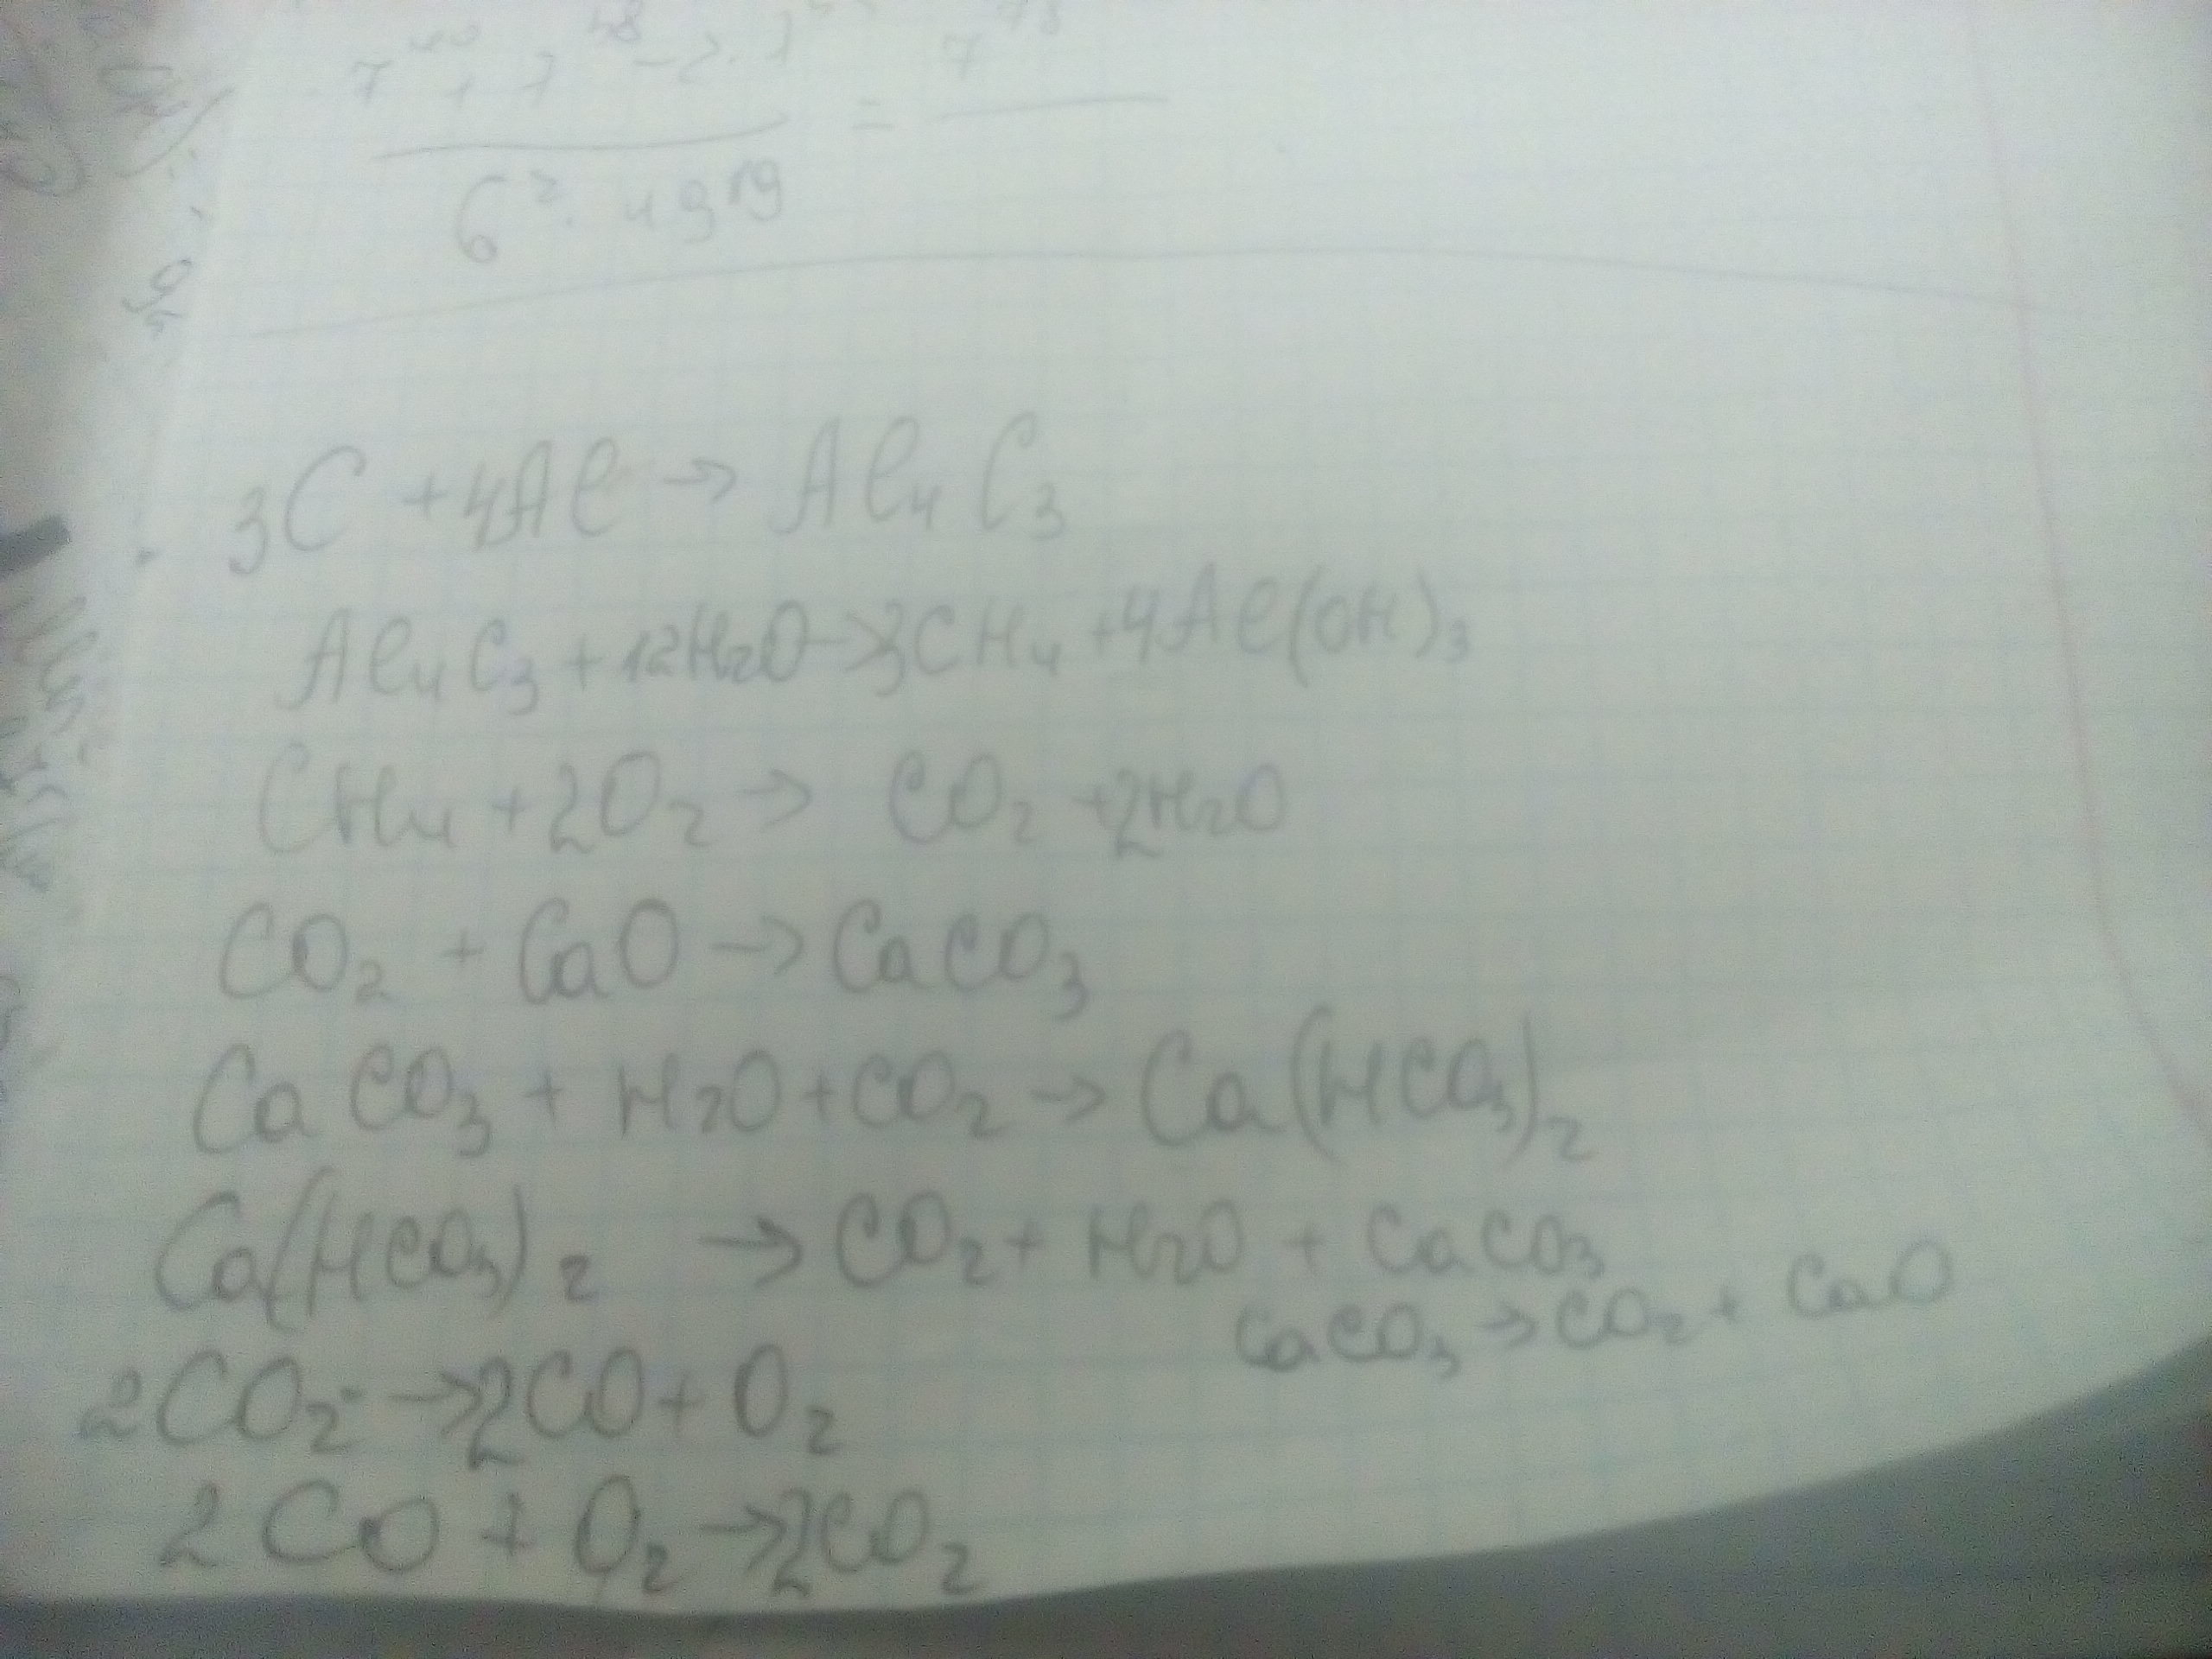 6² · 49¹⁹
3C + 4Al → Al₄C₃
Al₄C₃ + 12H₂O → 3CH₄ + 4Al(OH)₃
CH₄ + 2O₂ → CO₂ + 2H₂O
CO₂ + CaO → CaCO₃
CaCO₃ + H₂O + CO₂ → Ca(HCO₃)₂
Ca(HCO₃)₂ → CO₂ + H₂O + CaCO₃
CaCO₃ → CO₂ + CaO
2CO₂ → 2CO + O₂
2CO + O₂ → 2CO₂